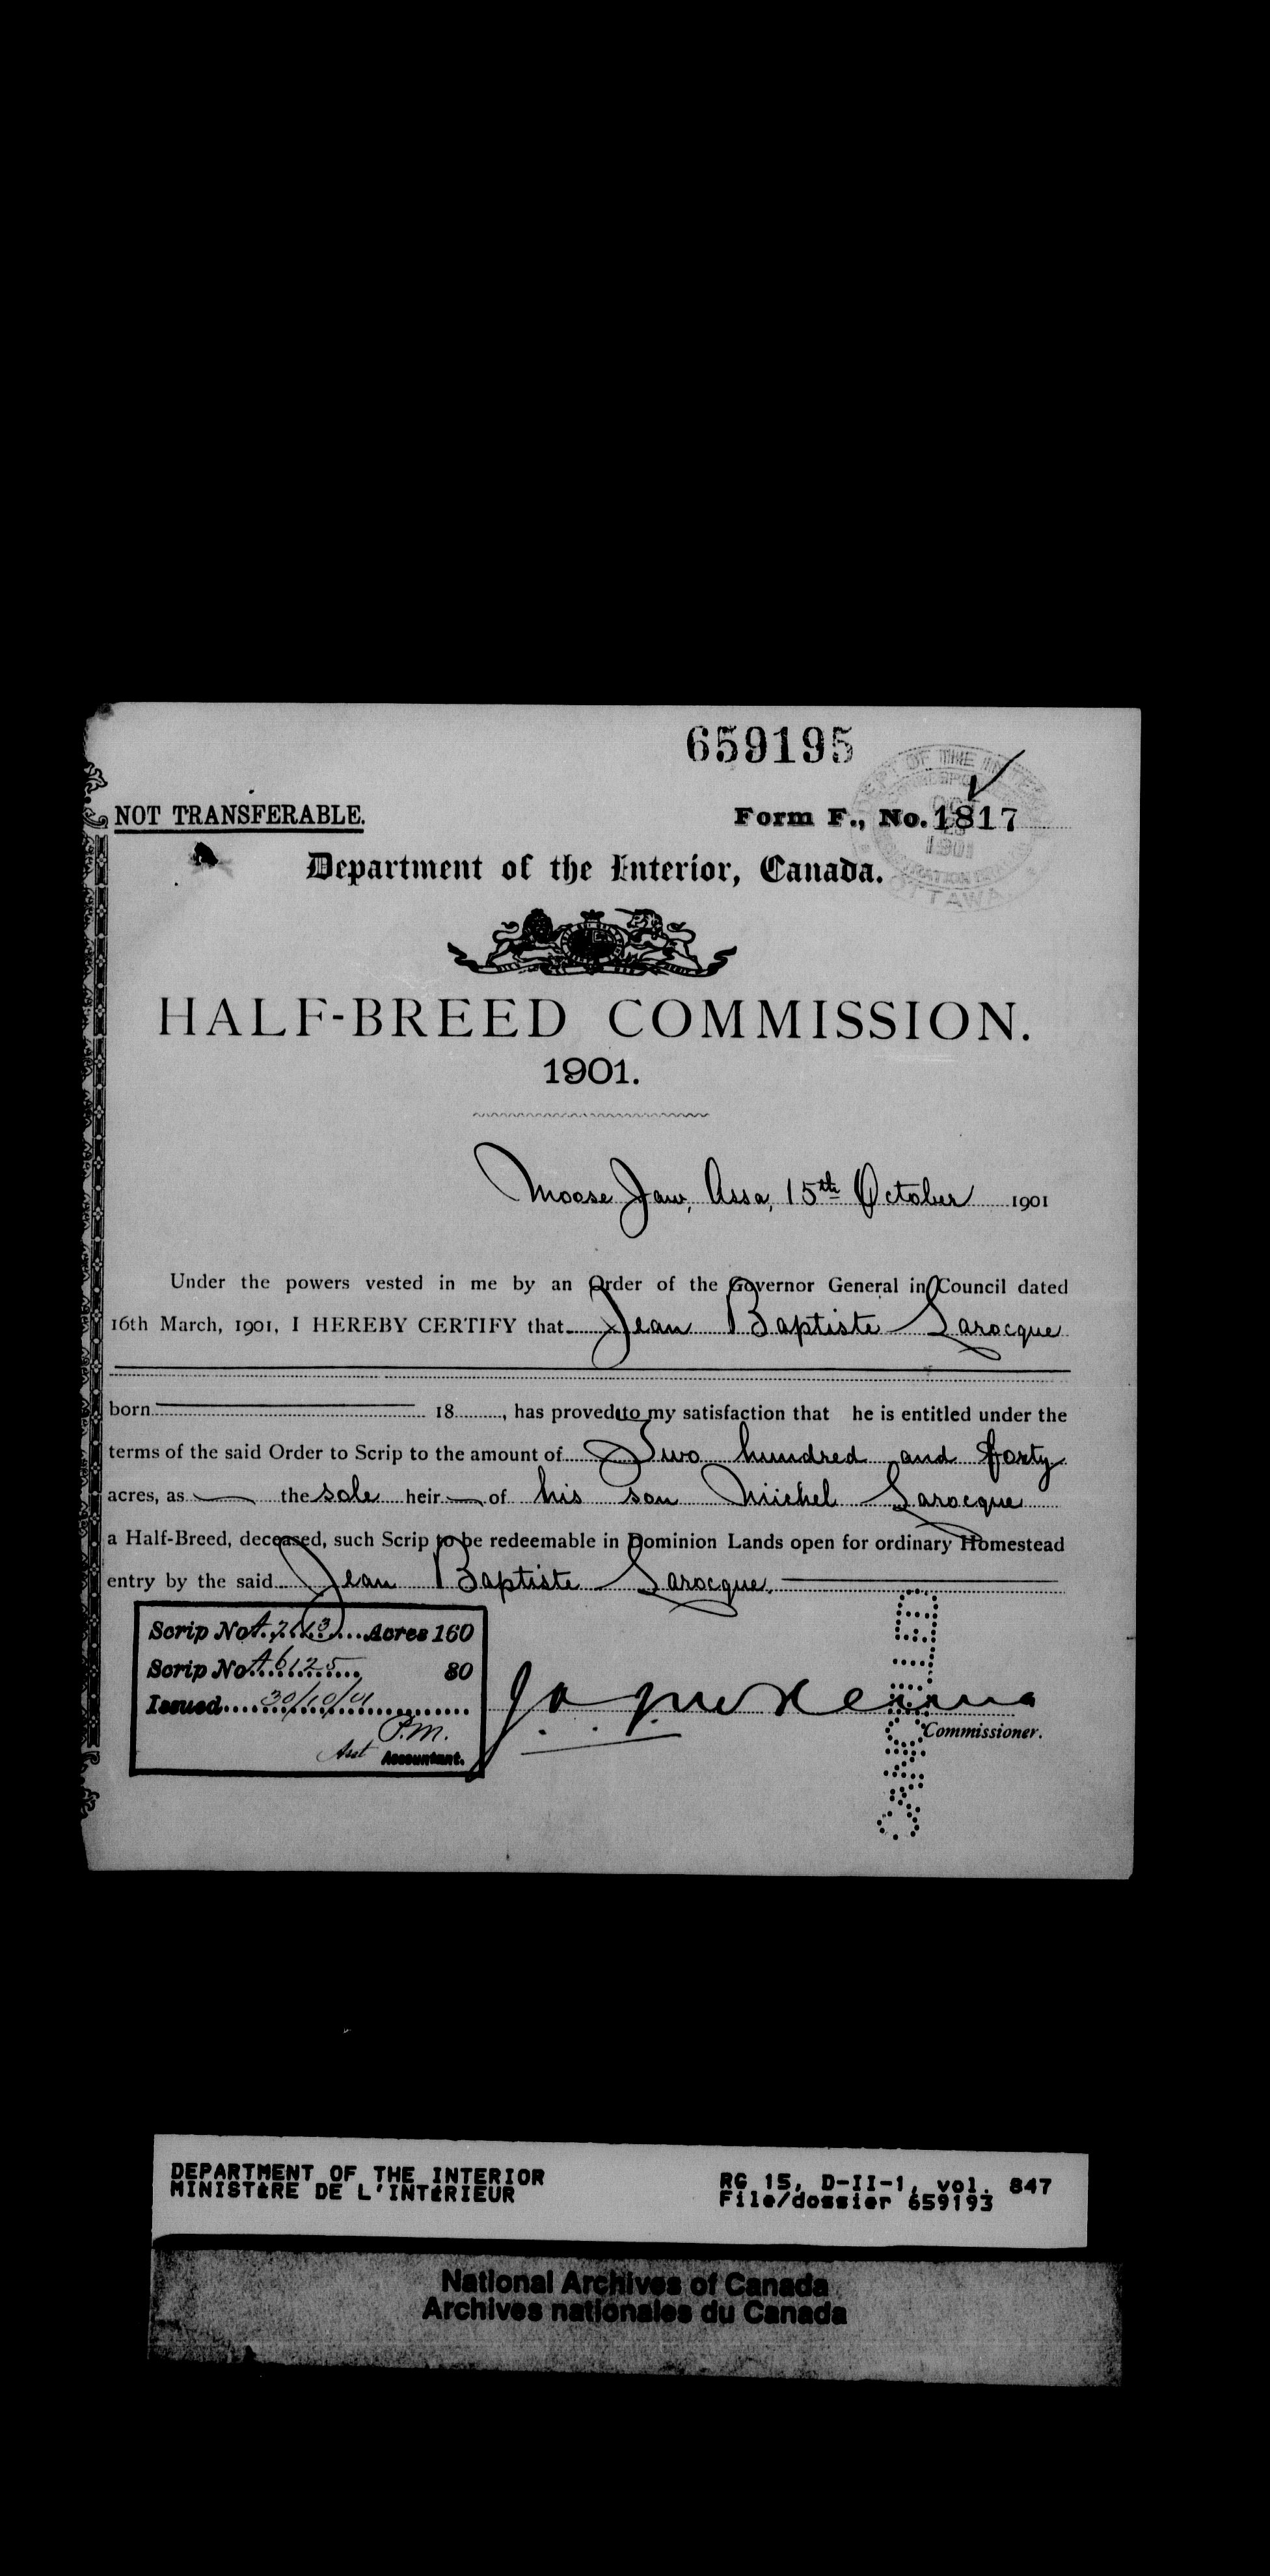 659195
NOT TRANSFERABLE.
Form F., No. 1817
DEPT OF THE INTERIOR
1901
OTTAWA
Department of the Interior, Canada.
HALF-BREED COMMISSION.
1901.
Moose Jaw, Assa, 15th October 1901
Under the powers vested in me by an Order of the Governor General in Council dated
16th March, 1901, I HEREBY CERTIFY that Jean Baptiste Larocque
born 18 , has proved to my satisfaction that he is entitled under the
terms of the said Order to Scrip to the amount of Two hundred and forty
acres, as the sole heir of his son Michel Larocque
a Half-Breed, deceased, such Scrip to be redeemable in Dominion Lands open for ordinary Homestead
entry by the said Jean Baptiste Larocque.
Scrip No. Acres 160
Scrip No. A6125 80
Issued 30/10/01
P.M.
Asst Accountant.
Commissioner.
CANCELLED
DEPARTMENT OF THE INTERIOR
MINISTÈRE DE L'INTÉRIEUR
RG 15, D-II-1, vol. 847
File/dossier 659193
National Archives of Canada
Archives nationales du Canada